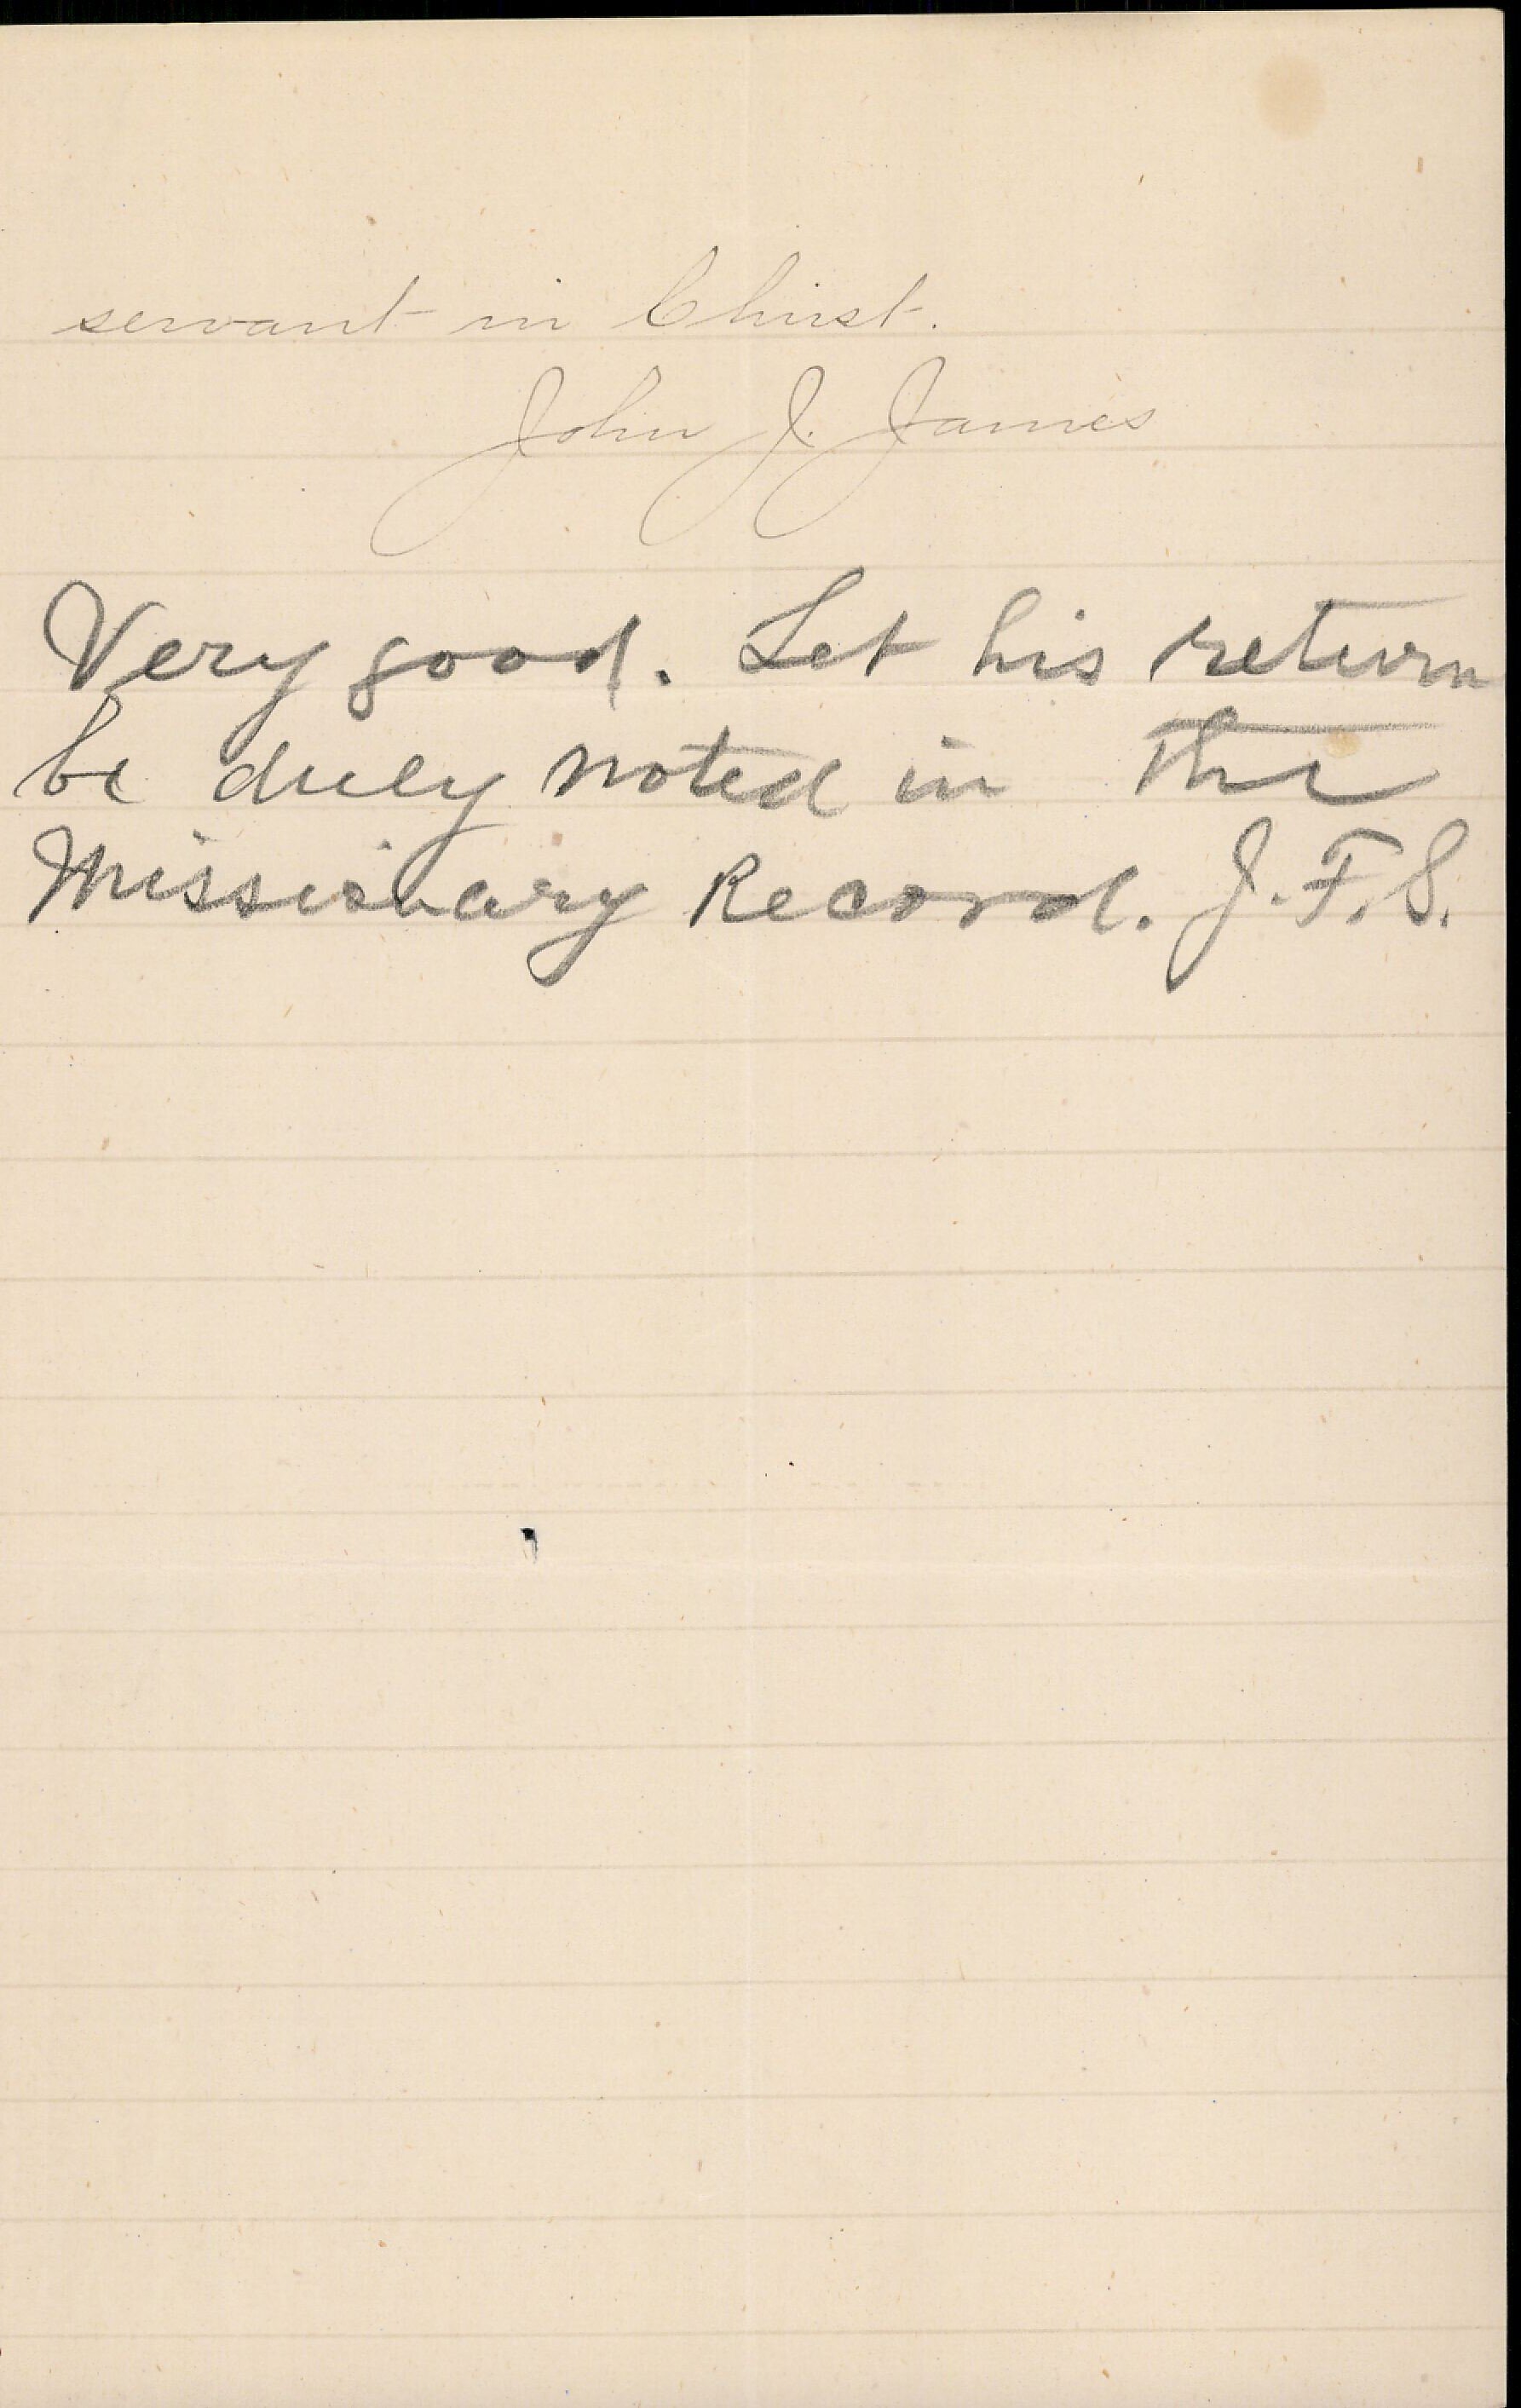 servant in Christ.
John J. James
Very good. Let his return
be duly noted in the
Missionary Record. J.F.S.